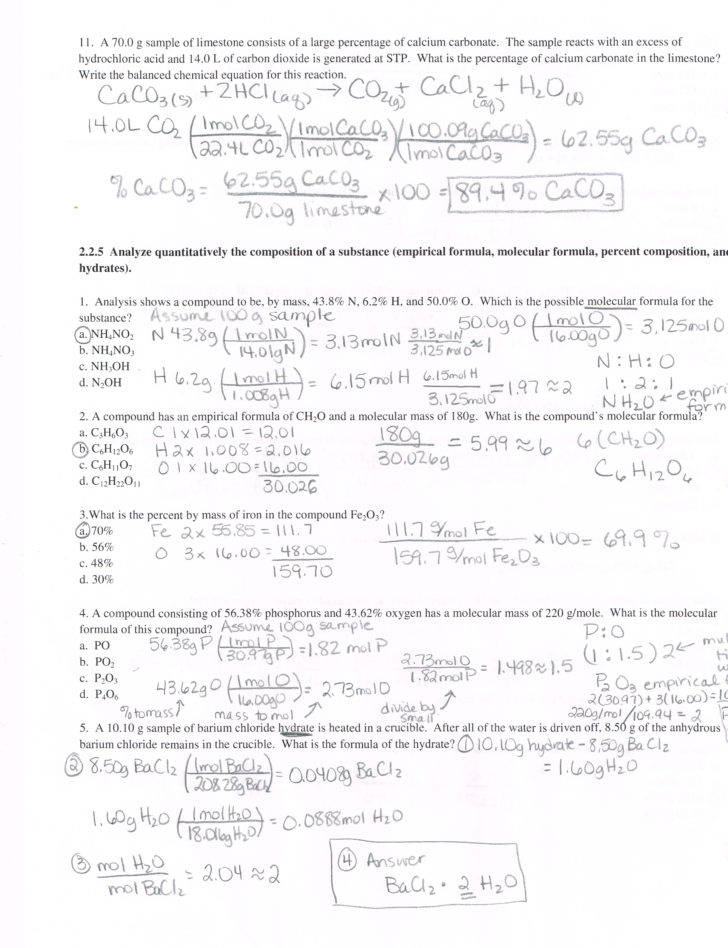 11. A 70.0 g sample of limestone consists of a large percentage of calcium carbonate. The sample reacts with an excess of
hydrochloric acid and 14.0 L of carbon dioxide is generated at STP. What is the percentage of calcium carbonate in the limestone?
Write the balanced chemical equation for this reaction.
CaCO₃(s) + 2HCl(aq) → CO₂(g) + CaCl₂(aq) + H₂O(l)
14.0L CO₂ (1molCO₂/22.4L CO₂)(1molCaCO₃/1mol CO₂)(100.09gCaCO₃/1molCaCO₃) = 62.55g CaCO₃
% CaCO₃ = 62.55g CaCO₃/70.0g limestone x100 = 89.4% CaCO₃
2.2.5 Analyze quantitatively the composition of a substance (empirical formula, molecular formula, percent composition, an
hydrates).
1. Analysis shows a compound to be, by mass, 43.8% N, 6.2% H, and 50.0% O. Which is the possible molecular formula for the
substance? Assume 100g sample
50.0gO (1molO/16.00gO) = 3.125molO
a. NH₄NO₂ N 43.8g (1molN/14.01gN) = 3.13molN 3.13molN/3.125molO ≈ 1
b. NH₄NO₃
c. NH₃OH N:H:O
d. N₂OH H 6.2g (1molH/1.008gH) = 6.15mol H 6.15mol H/3.125molO = 1.97 ≈ 2 1:2:1
NH₂O ← empiri
form
2. A compound has an empirical formula of CH₂O and a molecular mass of 180g. What is the compound's molecular formula?
a. C₃H₆O₃ C 1x12.01 = 12.01 180g/30.026g = 5.99 ≈ 6 6(CH₂O)
b. C₆H₁₂O₆ H 2x 1.008 = 2.016
c. C₆H₁₁O₇ O 1 x 16.00 = 16.00 C₆H₁₂O₆
d. C₁₂H₂₂O₁₁ 30.026
3.What is the percent by mass of iron in the compound Fe₂O₃?
a. 70% Fe 2x 55.85 = 111.7 111.7 g/mol Fe/159.7 g/mol Fe₂O₃ x100 = 69.9%
b. 56% O 3x 16.00 = 48.00
c. 48% 159.70
d. 30%
4. A compound consisting of 56.38% phosphorus and 43.62% oxygen has a molecular mass of 220 g/mole. What is the molecular
formula of this compound? Assume 100g sample P:O
a. PO 56.38gP (1molP/30.97gP) = 1.82 mol P (1:1.5)2 ←
b. PO₂ 2.73molO/1.82molP = 1.498≈1.5
c. P₂O₃ 43.62gO (1molO/16.00gO) = 2.73molO P₂O₃ empirical
d. P₄O₆ 2(30.97)+3(16.00)=
% to mass mass to mol divide by small 220g/mol/109.94 = 2
5. A 10.10 g sample of barium chloride hydrate is heated in a crucible. After all of the water is driven off, 8.50 g of the anhydrous
barium chloride remains in the crucible. What is the formula of the hydrate? ① 10.10g hydrate - 8.50g BaCl₂
= 1.60gH₂O
② 8.50g BaCl₂ (1molBaCl₂/208.28gBaCl₂) = 0.0408g BaCl₂
1.60gH₂O (1molH₂O/18.016gH₂O) = 0.0888mol H₂O
③ mol H₂O/mol BaCl₂ = 2.04 ≈ 2
④ Answer
BaCl₂ · 2 H₂O